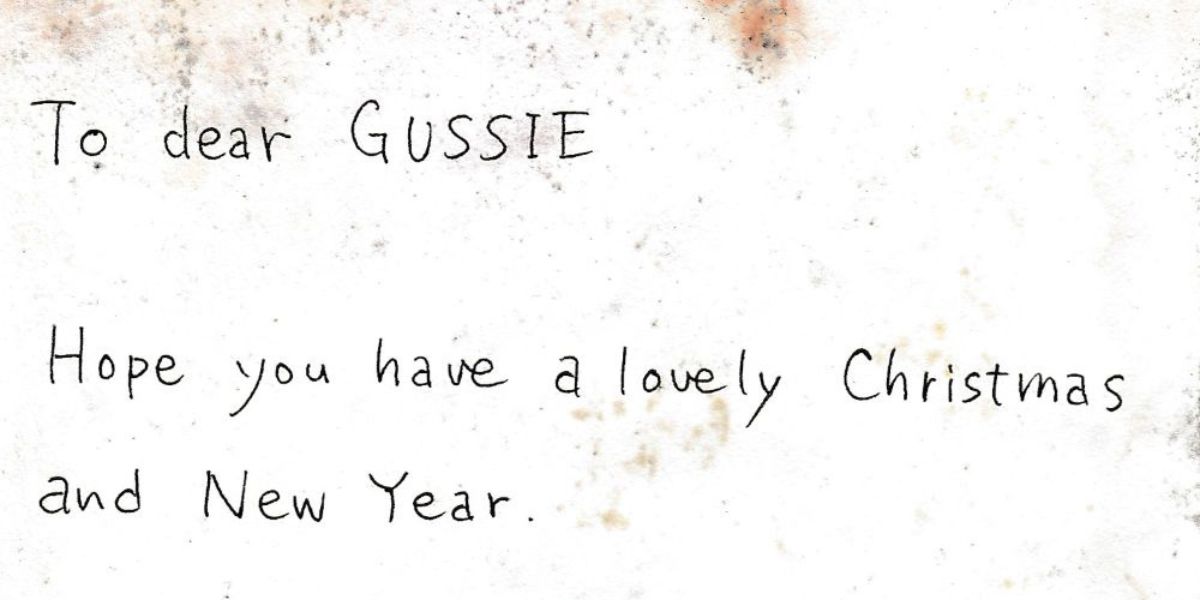 To dear GUSSIE
Hope you have a lovely Christmas
and New Year.